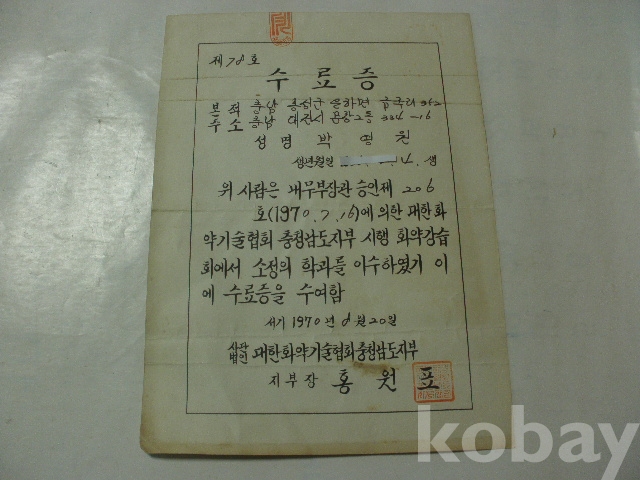 제78호
수료증
본적 충남 홍성군 은하면 금국리 362
주소 충남 대전시 용강2동 334-16
성명 박영원
생년월일 4. 생
위 사람은 내무부장관 승인제 206
호(1970.7.16)에 의한 대한화
약기술협회 충청남도지부 시행 화약강습
회에서 소정의 학과를 이수하였기 이
에 수료증을 수여함
서기 1970년 8월 20일
사단법인 대한화약기술협회충청남도지부
지부장 홍원표
kobay